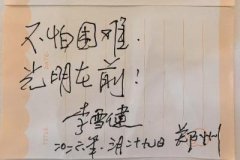 不怕困难.
光明在前!
李雪健
二〇二六年.二月二十九日 郑州